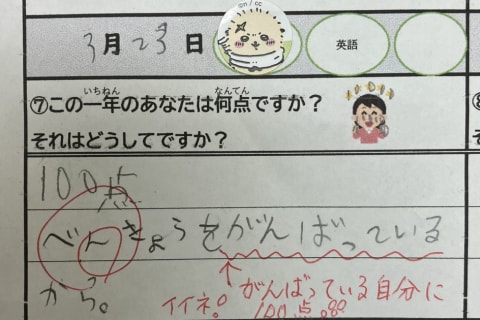 ©n / cc
3月23日
英語
⑦この一年のあなたは何点ですか？
いちねん なんてん
それはどうしてですか？
100点
べんきょうをがんばっている
から。
イイネ。がんばっている自分に
100点。